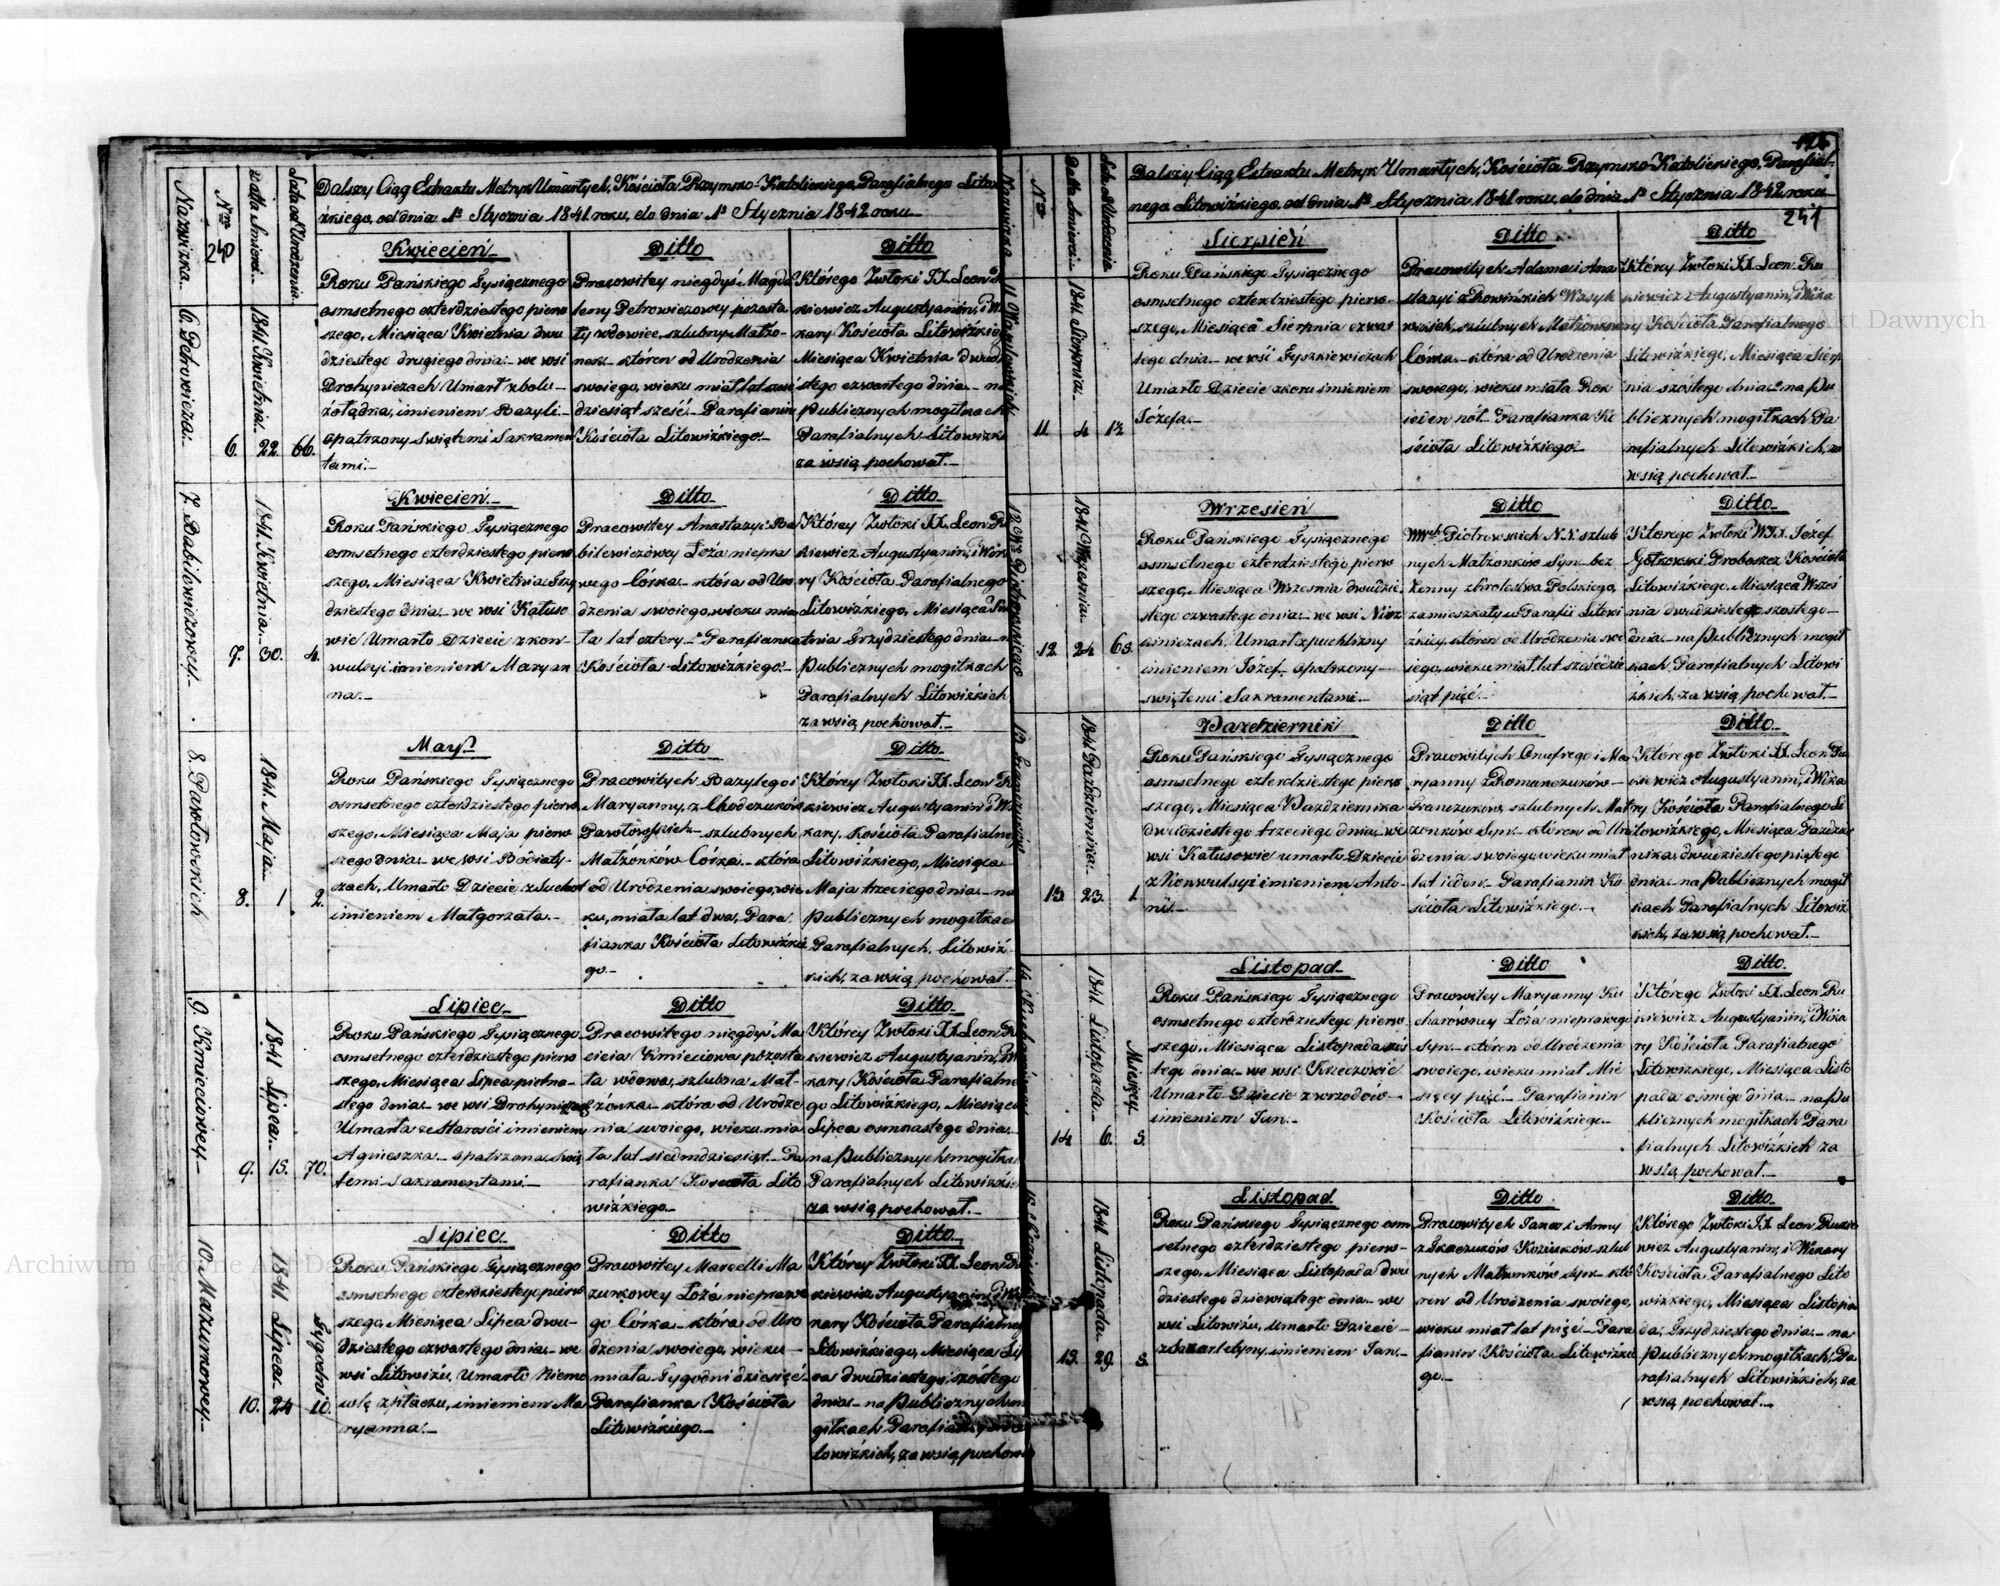 Dalszy Ciąg Extraktu Metryk Umarłych, Kościoła Rzymsko-Katolickiego Parafialnego Litowi
żkiego, od dnia 1º Stycznia 1841 roku, do dnia 1º Stycznia 1842 roku
Nazwiska.
Nro
240
Lata od Urodzenia.
6. Petrowicza.
6.
1841. Kwietnia.
22.
66.
Kwiecień.
Roku Pańskiego Tysiącznego
osmsetnego czterdziestego pierw
szego, Miesiąca Kwietnia dwu
dziestego drugiego dnia.- we wsi
Drohyniczach Umarł z bolu
żołądka, imieniem Bazyli.-
opatrzony Swiętemi Sakramen
tami.-
Ditto
Pracowitey niegdyś Magda
leny Petrowiczowey pozosta
ły wdowiec, szlubny Małżo
nek.- któren od Urodzenia
swoiego, wieku miał lat sześć
dziesiąt sześć.- Parafianin
Kościoła Litowiżkiego.-
Ditto
Którego Zwłoki JX. Leon R
kiewicz Augustyanin, i Wi
kary Kościoła Litowiżkie
Miesiąca Kwietnia dwud
stego czwartego dnia.- na
Publicznych mogiłkach
Parafialnych Litowizk
za wsią pochował.-
7. Babilewiczowey.-
7.
1841. Kwietnia.
30.
4.
Kwiecień.-
Roku Pańskiego Tysiącznego
osmsetnego czterdziestego pierw
szego, Miesiąca Kwietnia Trzy
dziestego dnia.- we wsi Katuso
wie Umarło Dziecie z kon-
wulsyi imieniem Maryan
na.-
Ditto
Pracowitey Anastazyi Ba
bilewiczowey Łoża niepra
wego Córka.- która od Uro
dzenia swoiego, wieku mia
ła lat cztery.- Parafianka
Kościoła Litowiżkiego.-
Ditto
Którey Zwłoki JX. Leon R
kiewicz Augustyanin, i Wika
ry Kościoła Parafialnego
Litowiżkiego, Miesiąca Kwie
tnia Trzydziestego dnia.- n
Publicznych mogiłkach
Parafialnych Litowizkich
za wsią pochował.-
8. Pawłowskich
8.
1841. Maja.
1
2.
May.
Roku Pańskiego Tysiącznego
osmsetnego czterdziestego pierw
szego, Miesiąca Maja pierw
szego dnia.- we wsi
czach, Umarło Dziecie z Suchot
imieniem Małgorzata.-
Ditto
Pracowitych Bazylego i
Maryanny, z Chodczuków
szlubnych
Małżonków Córka.- która
od Urodzenia swoiego, wie
ku, miała lat dwa, Para
fianka Kościoła Litowiżkie
go.-
Ditto.
Którey Zwłoki JX. Leon R
kiewicz Augustyanin i Wi
kary, Kościoła Parafialne
Litowiżkiego, Miesiąca
Maja trzeciego dnia.- na
Publicznych mogiłkac
Parafialnych, Litowiż-
kich, za wsią pochował.-
9. Kmieciowey.-
9.
1841 Lipca.
15.
70.
Lipiec.
Roku Pańskiego Tysiącznego
osmsetnego czterdziestego pierw
szego, Miesiąca Lipca pietna-
stego dnia.- we wsi Drohyniczach
Umarła ze starości imieniem
Agnieszka.- opatrzona Swię
temi Sakramentami.-
Ditto
Pracowitego niegdyś Ma
cieia Kmieciowa pozosta
ła wdowa, szlubna Mał-
żonka.- która od Urodze
nia swoiego, wieku mia
ła lat siedmdziesiąt.- Pa
rafianka Kościoła Lito
wiżkiego.-
Ditto.
Którey Zwłoki JX. Leon R
kiewicz Augustyanin, i Wi
kary Kościoła Parafialne
go Litowiżkiego, Miesiąca
Lipca osmnastego dnia.-
na Publicznych mogiłka
Parafialnych Litowizkic
za wsią pochował.-
10. Mazurkowey.-
10.
1841. Lipca.
24
Tygodni
10.
Lipiec.
Roku Pańskiego Tysiącznego
osmsetnego czterdziestego pierw
szego, Miesiąca Lipca dwu-
dziestego czwartego dnia.- we
wsi Litowiżu, Umarło Niemo
wlę z płaczu, imieniem Ma
ryanna.-
Ditto
Pracowitey Marcelli Ma
zurkowey Łoża niepraw
go Córka.- która od Uro
dzenia swoiego, wieku
miała Tygodni dziesięć.-
Parafianka Kościoła
Litowiżkiego.-
Ditto.
Którey Zwłoki JX. Leon R
kiewicz Augustyanin i Wi
kary Kościoła Parafialneg
Litowiżkiego, Miesiąca Lip
ca dwudziestego szóstego
dnia.- na Publicznych m
giłkach Parafialnych Li
towizkich, za wsią pochow
241
Dalszy Ciąg Extraktu Metryk Umarłych, Kościoła Rzymsko-Katolickiego, Parafial-
nego Litowiżkiego, od dnia 1º Stycznia 1841 roku, do dnia 1º Stycznia 1842 roku
Nazwiska
Nro
Datta Śmierci.
11.
1841 Sierpnia.
4
1½
Sierpień
Roku Pańskiego Tysiącznego
osmsetnego czterdziestego pierw
szego, Miesiąca Sierpnia czwar
tego dnia.- we wsi Tyszkiewiczach
Umarło Dziecie z koru imieniem
Józefa.-
Ditto
Pracowitych Adama i Ana
stazyi z Rowińskich Wasyk
szlubnych Małżonkow
Córka.- która od Urodzenia
swoiego, wieku miała Rok
ieden i pół.- Parafianka Ko
ścioła Litowiżkiego.-
Ditto
Którey Zwłoki JX. Leon Ru
kiewicz Augustyanin, i Wika
ry Kościoła Parafialnego
Litowiżkiego, Miesiąca Sierp
nia szóstego dnia.- na Pu
blicznych mogiłkach Pa
rafialnych Litowiżkich, za
wsią pochował.-
12. Piotrowskiego
12.
1841 Września.
24
65.
Wrzesień
Roku Pańskiego Tysiącznego
osmsetnego czterdziestego pierw
szego, Miesiąca Wrzesnia dwudzie
stego czwartego dnia.- we wsi
Umarł z puchlizny
imieniem Józef.- opatrzony
świętemi Sakramentami.-
Ditto
Piotrowskich N.N. szlub
nych Małżonków Syn.- bez
żenny z Krolestwa Polskiego,
zamieszkały w Parafii Litowi
żkiey, któren od Urodzenia swo
iego, wieku miał lat sześćdzie
siąt pięć.-
Ditto.
Którego Zwłoki WJX. Józef
Gołkowski Proboszcz Kościoła
Litowiżkiego, Miesiąca Wrześ
nia dwudziestego szóstego
dnia.- na Publicznych mogił
kach Parafialnych Litowi
żkich, za wsią pochował.-
13.
1841 Pazdziernika.
23.
1.
Pazdziernik
Roku Pańskiego Tysiącznego
osmsetnego czterdziestego pierw
szego, Miesiąca Pazdziernika
dwudziestego trzeciego dnia.- we
wsi Katusowie umarło Dziecie
z Konwulsyi imieniem Anto-
ni.-
Ditto
Pracowitych Onufrego i Ma
ryanny z Romanczuków
Franczukow, szlubnych Mał
żonków Syn.- któren od Uro
dzenia swoiego, wieku miał
lat ieden.- Parafianin Ko
ścioła Litowiżkiego.-
Ditto.
Którego Zwłoki JX. Leon Ru
kiewicz Augustyanin, i Wika
ry Kościoła Parafialnego Li
towiżkiego, Miesiąca Pazdzier
nika, dwudziestego piątego
dnia.- na Publicznych mogił
kach Parafialnych Litowiż
kich, za wsią pochował.-
14.
1841. Listopada.-
6.
Miesięcy
5.
Listopad
Roku Pańskiego Tysiącznego
osmsetnego czterdziestego pierw
szego, Miesiąca Listopada szós
tego dnia.- we wsi Krzeczowie
Umarło Dziecie z wrzodów.-
imieniem Jan.-
Ditto
Pracowitey Maryanny Ku
charówney Łoża nieprawego
Syn.- któren od Urodzenia
swoiego, wieku miał Mie
sięcy pięć.- Parafianin
Kościoła Litowiżkiego.-
Ditto.
Którego Zwłoki JX. Leon Ru
kiewicz Augustyanin, i Wika
ry Kościoła Parafialnego
Litowizkiego, Miesiąca Listo
pada osmego dnia.- na Pu
blicznych mogiłkach Para
fialnych Litowizkich za
wsią pochował.-
15.
1841 Listopada.
29.
5.
Listopad
Roku Pańskiego Tysiącznego osm
setnego czterdziestego pierw-
szego, Miesiąca Listopada dwu
dziestego dziewiątego dnia.- we
wsi Litowiżu, Umarło Dziecie
z Szkarlatyny, imieniem Jan.-
Ditto.
Pracowitych Jana i Anny
z Tkaczuków Koziuków szlub
nych Małżonków Syn.- któ
ren od Urodzenia swoiego,
wieku miał lat pięć.- Para
fianin Kościoła Litowizkie
go.-
Ditto.
Którego Zwłoki JX. Leon Rukie
wicz Augustyanin, i Wikary
Kościoła Parafialnego Lito
wizkiego, Miesiąca Listopa
da, Trzydziestego dnia.- na
Publicznych mogiłkach, Pa
rafialnych Litowizkich, za
wsią pochował.-
Archiwum Główne Akt Dawnych
Archiwum Główne Akt Dawnych